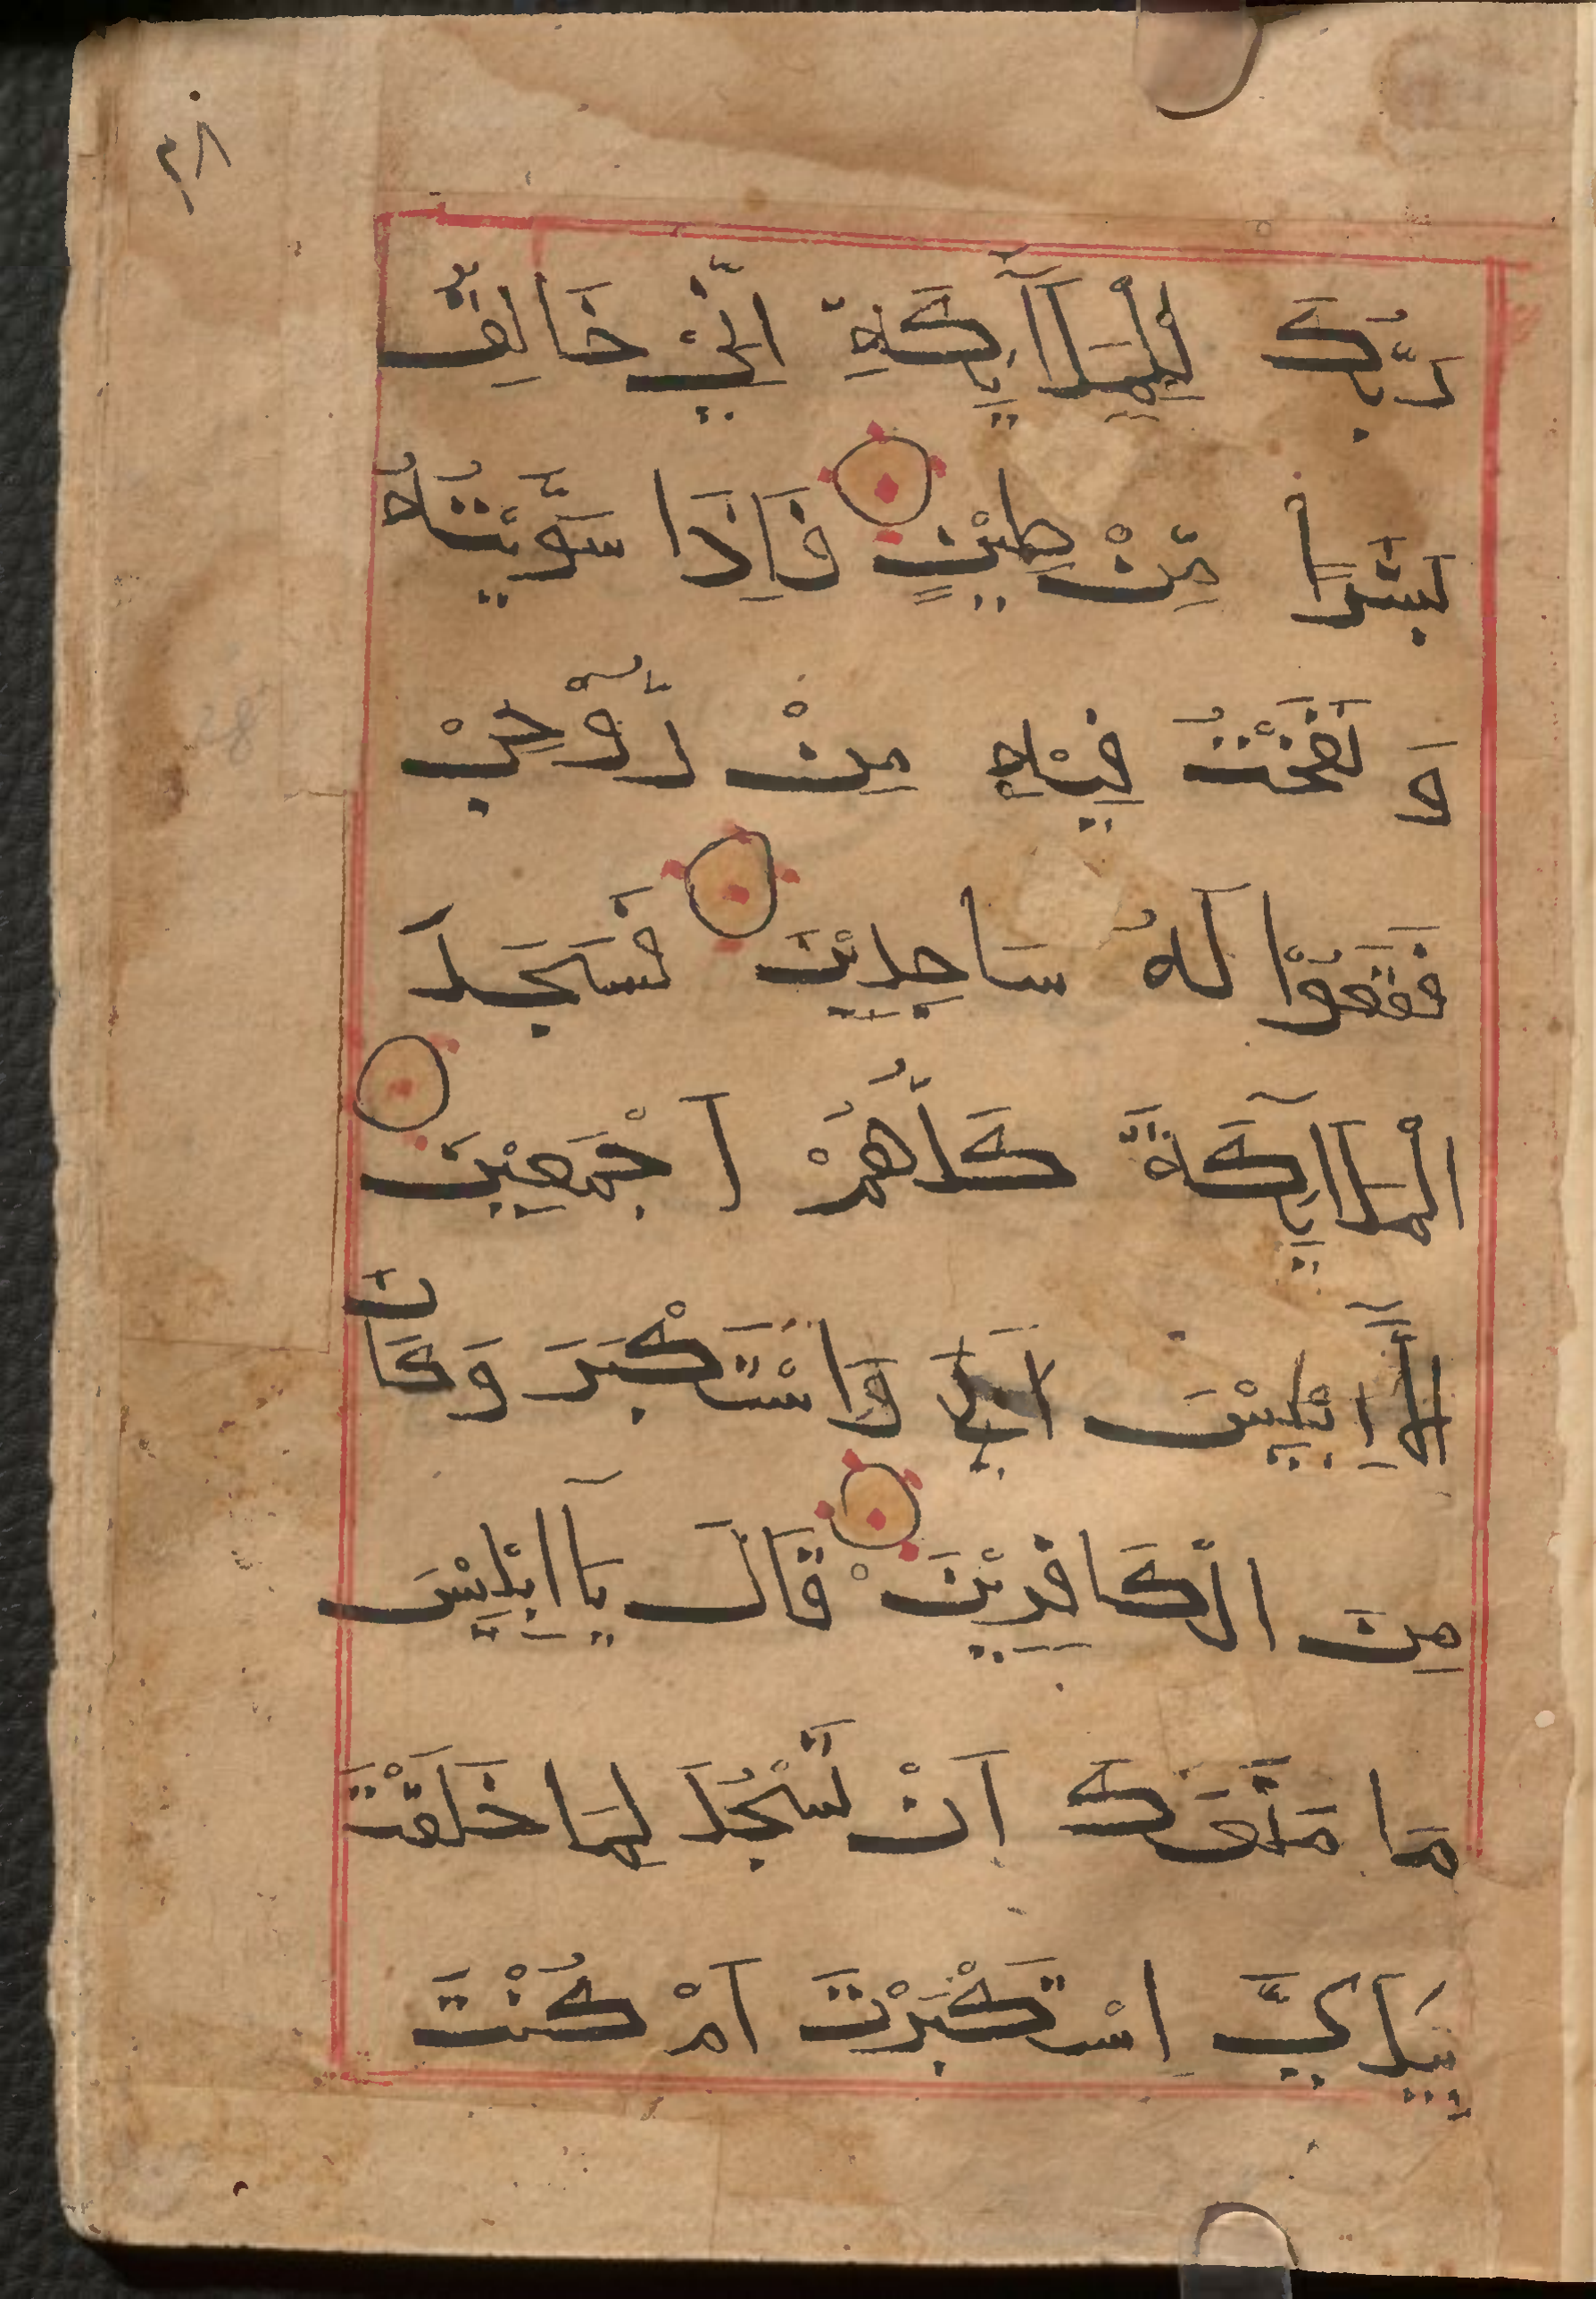 ٢٨
رَبُّكَ لِلْمَلَآاٮِٕكَةِ اِنِّيْ خَالِقٌۢ
بَشَرًا مِّنْ طِيْنٍ فَاِذَا سَوَّيْتُهُ
وَ نَفَخْتُ فِيْهِ مِنْ رُّوْحِيْ
فَقَعُوْا لَهُ سَاجِدِيْنَ فَسَجَدَ
الْمَلَآاٮِٕكَةُ كُلُّهُمْ اَجْمَعِيْنَ
اِلَّآ اِبْلِيْسَ اَبَي وَاسْتَكْبَرَ وَكَانَ
مِنَ الْكَافِرِيْنَ قَالَ يَآ اِبْلِيْسَ
مَا مَنَعَكَ اَنْ تَسْجُدَ لِمَا خَلَقْتَ
بِيَدَيَّ اِسْتَكْبَرْتَ اَمْ كُنْتَ
28